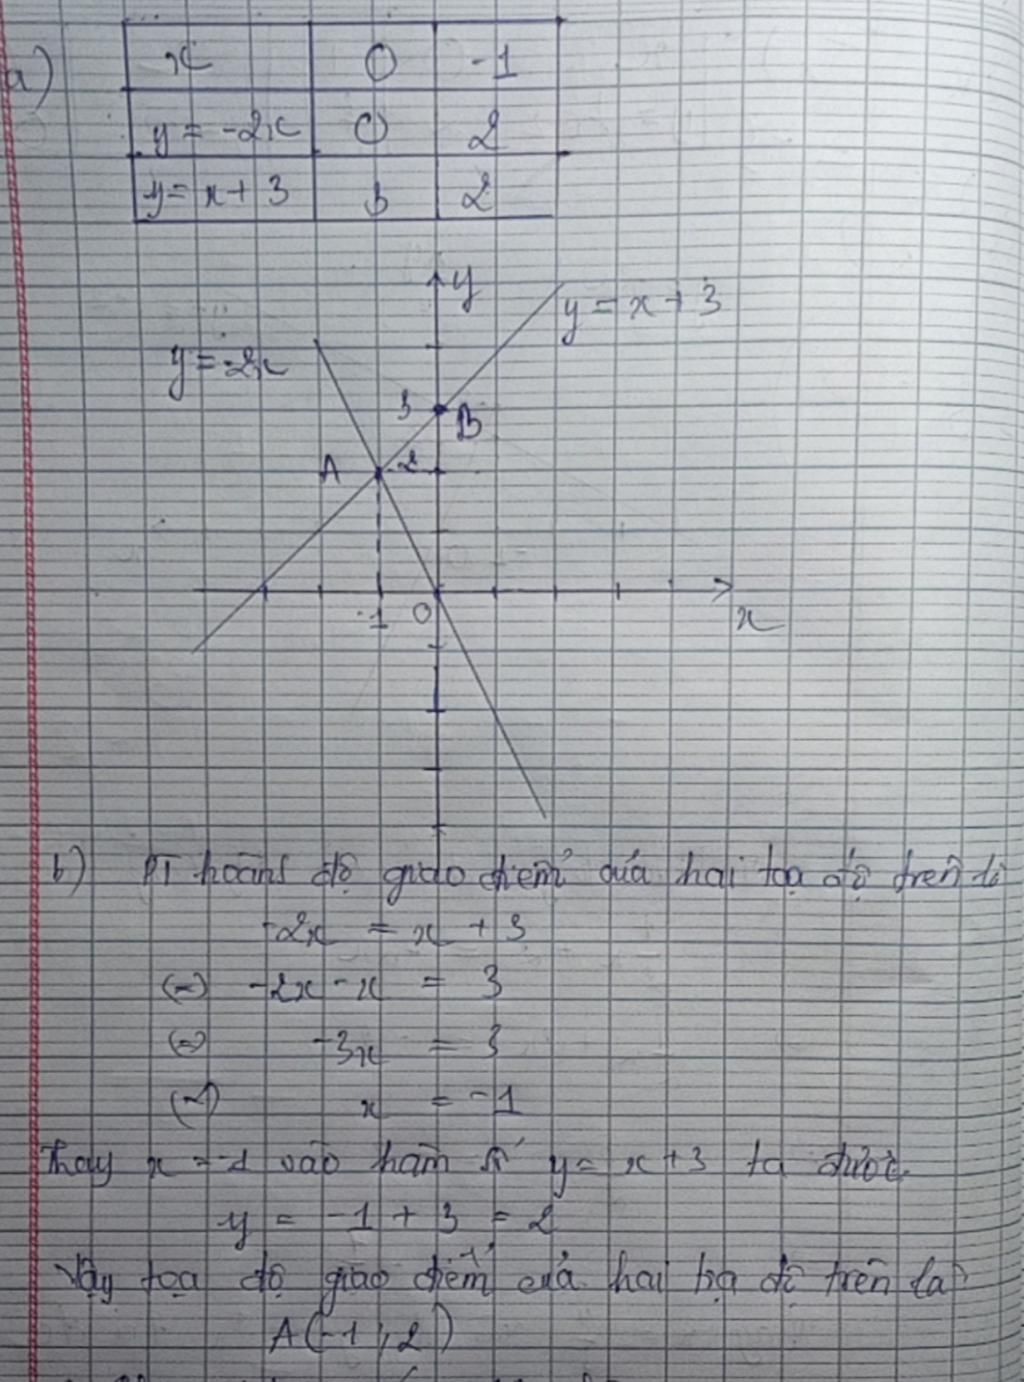 a)
x 0 -1
y = -2x 0 2
y = x + 3 3 2
y
y = x + 3
y = -2x
3 B
A 2
-1 0
x
b) PT hoành độ giao điểm của hai toạ độ trên là
-2x = x + 3
(=) -2x - x = 3
(=) -3x = 3
(=) x = -1
Thay x = -1 vào hàm số y = x + 3 ta được
y = -1 + 3 = 2
Vậy toạ độ giao điểm của hai toạ độ trên là
A(-1; 2)